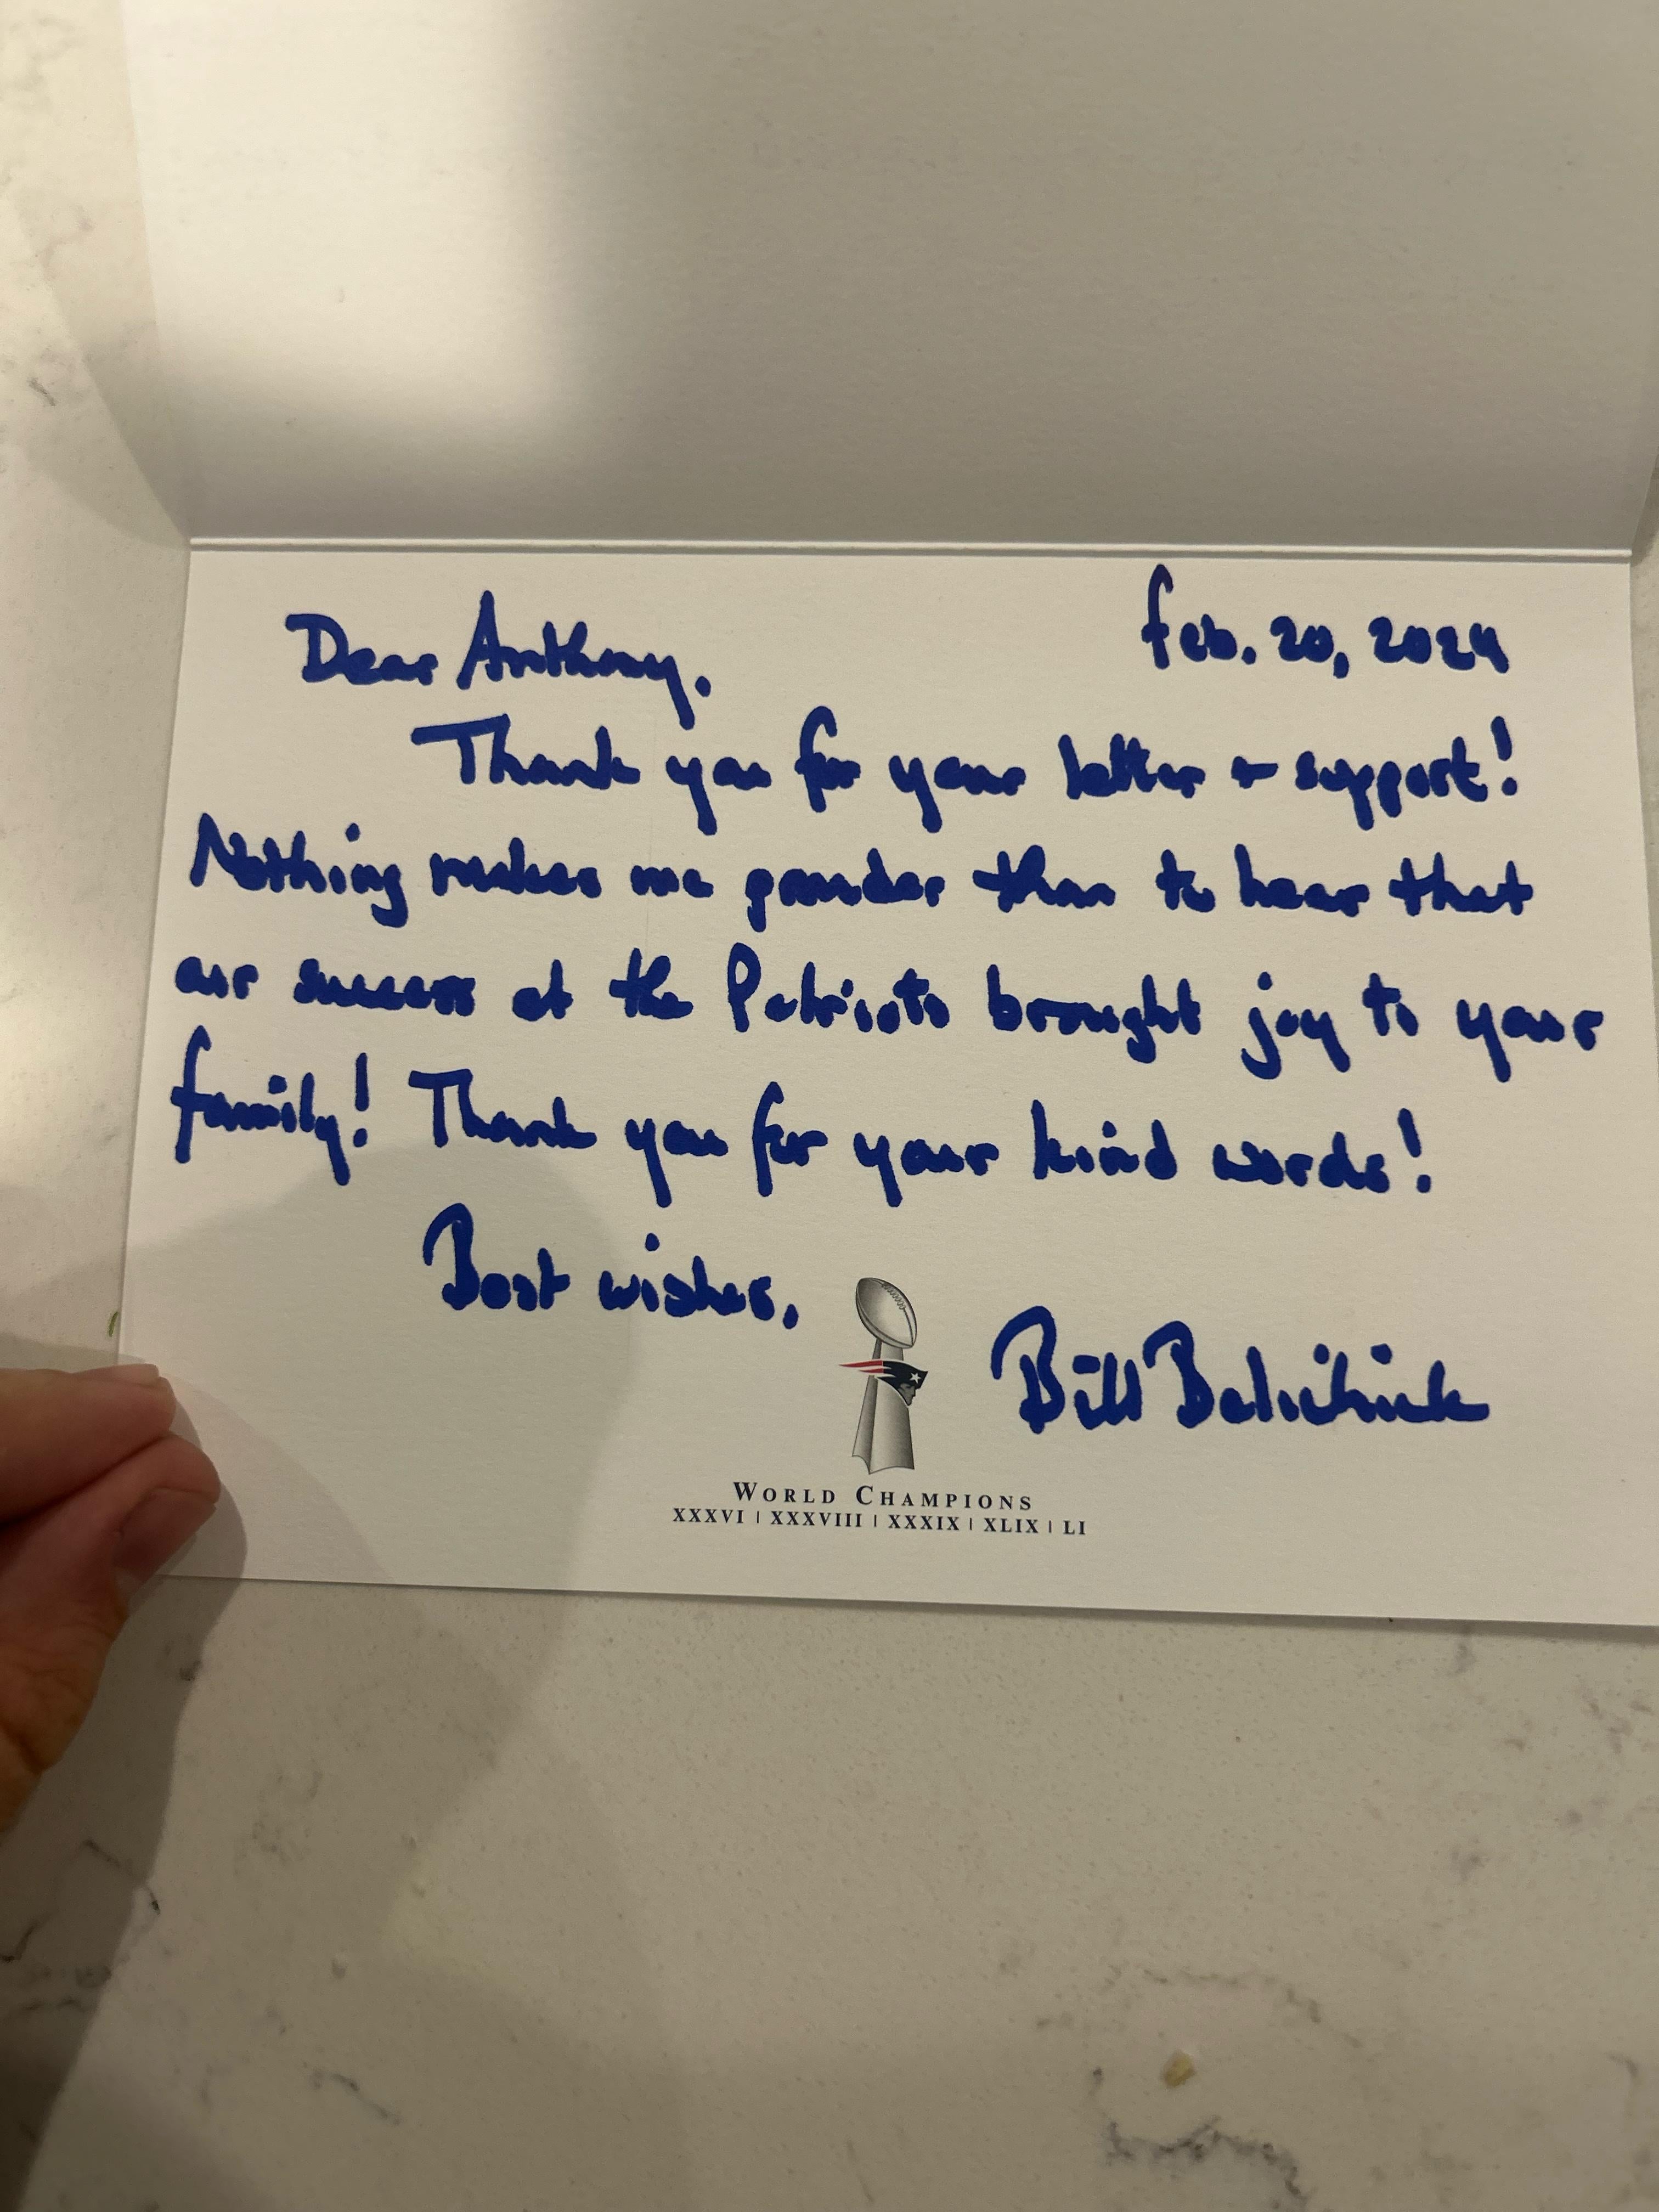 Feb. 20, 2024
Dear Anthony,
Thank you for your letter + support!
Nothing makes me prouder than to hear that
our success at the Patriots brought joy to your
family! Thank you for your kind words!
Best wishes,
Bill Belichick
WORLD CHAMPIONS
XXXVI | XXXVIII | XXXIX | XLIX | LI